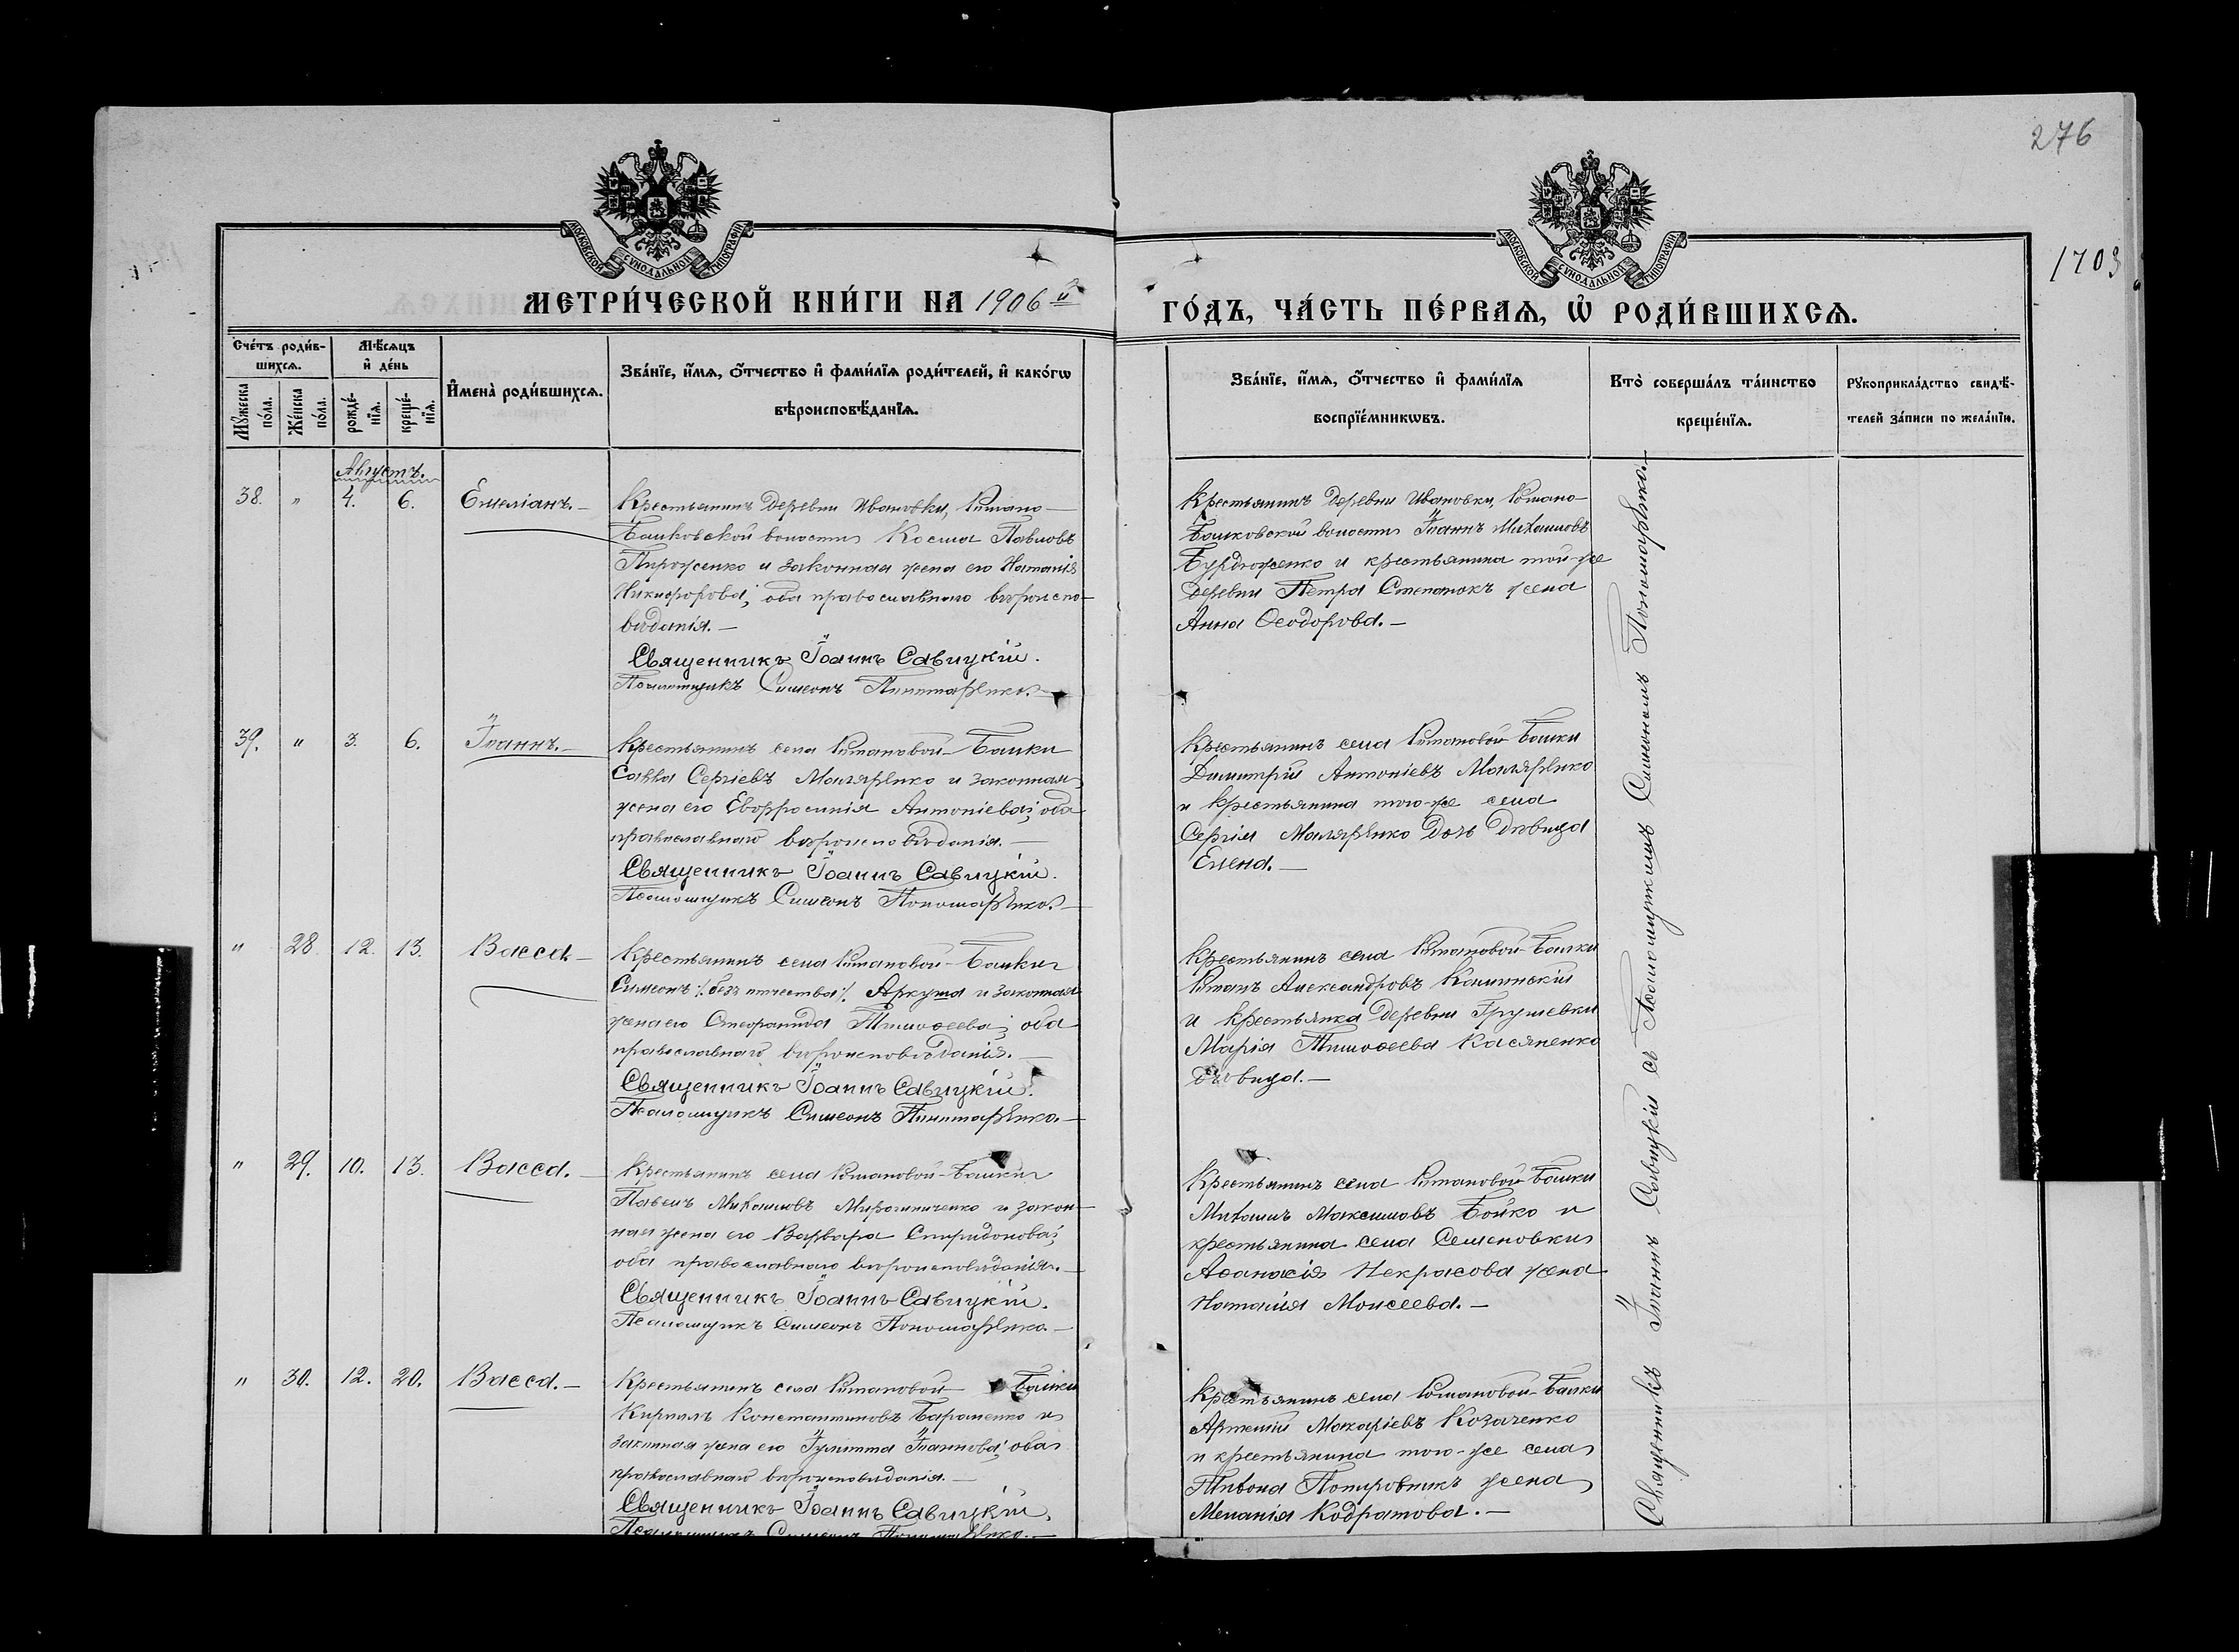 276
1703
МОСКОВСКОЙ СУНОДАЛЬНОЙ ТИПОГРАФІИ
МОСКОВСКОЙ СУНОДАЛЬНОЙ ТИПОГРАФІИ
МЕТРИ́ЧЕСКОЙ КНИ́ГИ НА 1906 й
ГО́ДЪ, ЧА́СТЬ ПЕ́РВАѦ, Ѡ҆ РОДИ́ВШИХСѦ.
Сче́тъ роди́в-
шихсѧ.
Мꙋ́жеска по́ла.
Же́нска по́ла.
Мѣ́сѧцъ
и҆ де́нь
рожде́-нїѧ.
креще́-нїѧ.
И҆мена̀ роди́вшихсѧ.
Зва́нїе, и҆́мѧ, ѻ҆́тчество и҆ фами́лїѧ роди́телей, и҆ како́гѡ
вѣроисповѣ́данїѧ.
Зва́нїе, и҆́мѧ, ѻ҆́тчество и҆ фами́лїѧ
воспрїе́мникѡвъ.
Кто̀ соверша́лъ та́инство
креще́нїѧ.
Рꙋкоприкла́дство свидѣ́-
телей за́писи по жела́нїю.
Августъ.
38. " 4. 6. Емеліанъ.—
Крестьянинъ деревни Ивановки, Романо-
Балковской волости Косма Павловъ
Пироженко и законная жена его Наталія
Никифорова; оба православнаго вѣроиспо-
вѣданія.—
Священникъ Іоаннъ Савицкій.
Псаломщикъ Симеонъ Пономаренко.—
Крестьянинъ деревни Ивановки, Романо-
Балковской волости Іоаннъ Михаиловъ
Бурдюженко и крестьянина той-же
деревни Петра Степанокъ жена
Анна Ѳеодорова.—
39. " 3. 6. Іоаннъ.—
Крестьянинъ села Романовой-Балки
Савва Сергіевъ Маляренко и законная
жена его Евфросинія Антоніева; оба
православнаго вѣроисповѣданія.—
Священникъ Іоаннъ Савицкій.
Псаломщикъ Симеонъ Пономаренко.—
Крестьянинъ села Романовой-Балки
Димитрій Антоніевъ Маляренко
и крестьянина того-же села
Сергія Маляренко дочь дѣвица
Елена.—
" 28. 12. 13. Васса.—
Крестьянинъ села Романовой-Балки
Симеонъ /безъ отчества/. Аркуша и законная
жена его Стефанида Тимоѳеева; оба
православнаго вѣроисповѣданія.—
Священникъ Іоаннъ Савицкій.
Псаломщикъ Симеонъ Пономаренко.—
Крестьянинъ села Романовой-Балки
Романъ Александровъ Калинскій
и крестьянка деревни Грушевки
Марія Тимоѳеева Касяненко
дѣвица.—
" 29. 10. 13. Васса.—
Крестьянинъ села Романовой-Балки
Павелъ Михаиловъ Мирошниченко и закон-
ная жена его Варвара Спиридонова;
оба православнаго вѣроисповѣданія.—
Священникъ Іоаннъ Савицкій.
Псаломщикъ Симеонъ Пономаренко.—
Крестьянинъ села Романовой-Балки
Михаилъ Максимовъ Бойко и
крестьянина села Семеновки
Аѳанасія Некрасова жена
Наталія Моисеева.—
" 30. 12. 20. Васса.—
Крестьянинъ села Романовой Балки
Кириллъ Константиновъ Бараненко и
законная жена его Іулитта Іоаннова; оба
православнаго вѣроисповѣданія.—
Священникъ Іоаннъ Савицкій.
Псаломщикъ Симеонъ Пономаренко.—
Крестьянинъ села Романовой-Балки
Артемій Макаріевъ Козаченко
и крестьянина того-же села
Тихона жена
Меланія Кодратова.—
Священникъ Іоаннъ Савицкій съ Псаломщикомъ Симеономъ Пономаренко.—